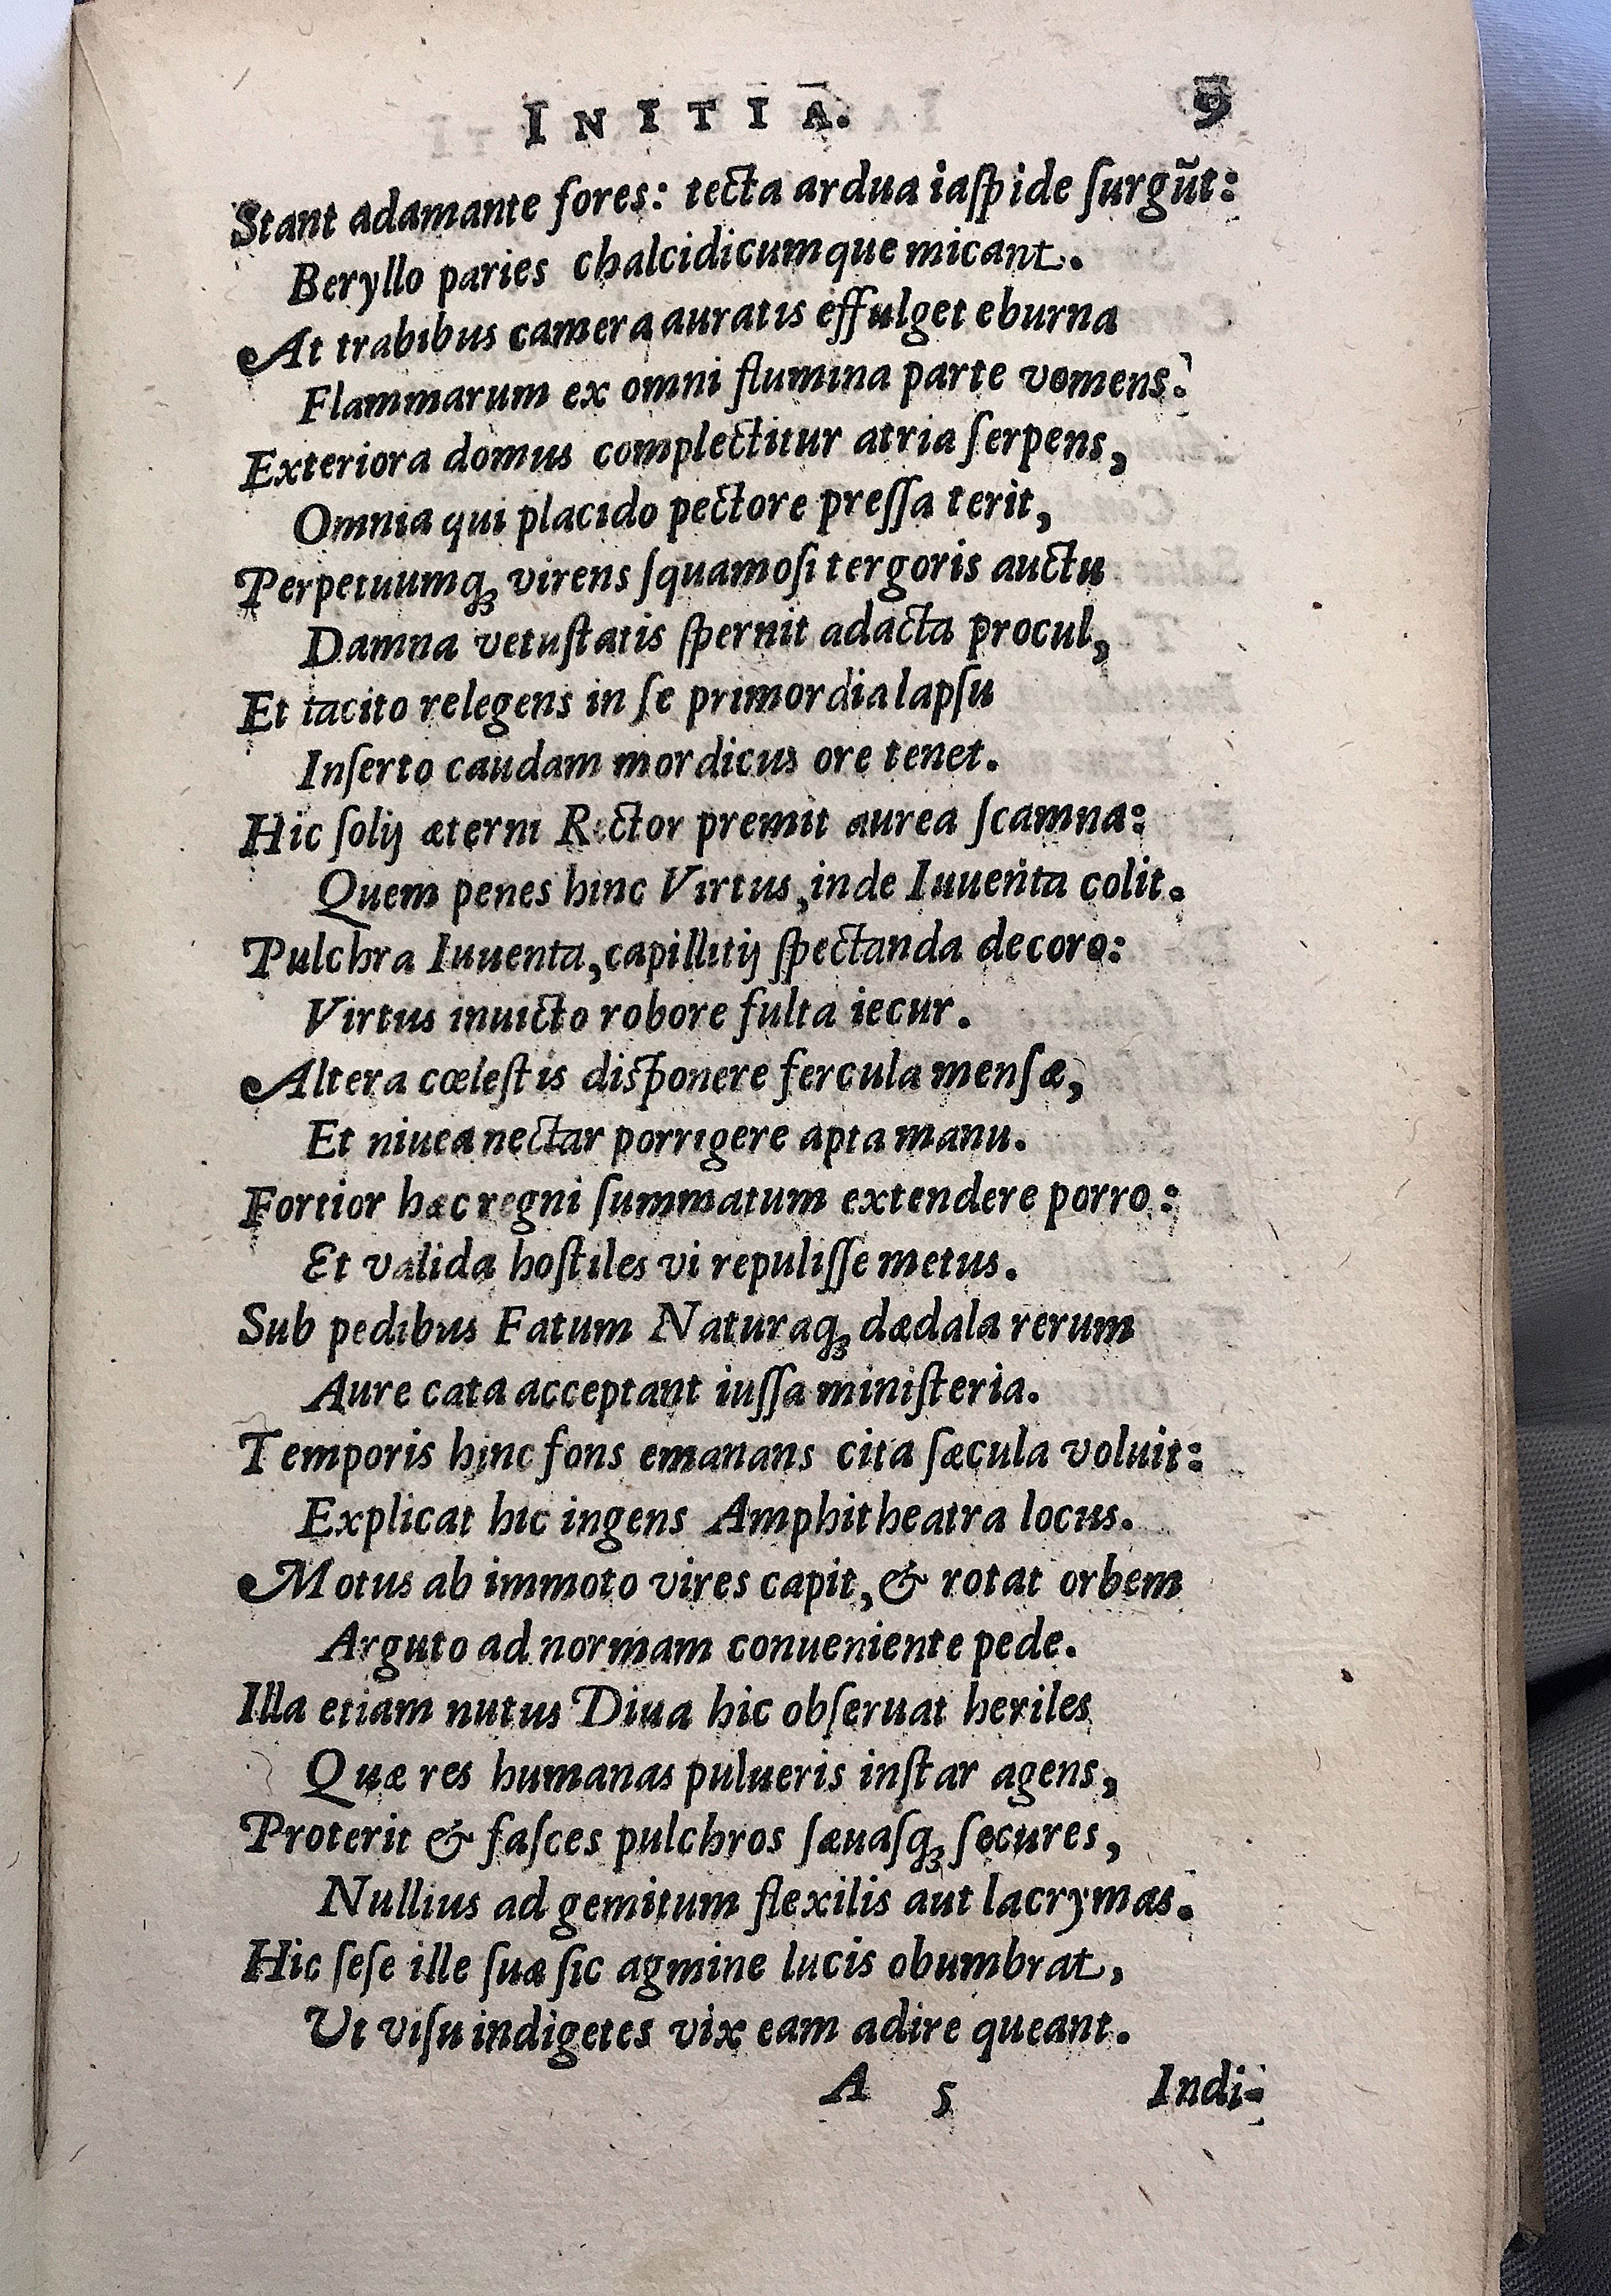 INITIA. 9
Stant adamante fores: tecta ardua iaſpide ſurgūt:
Beryllo paries chalcidicumque micant.
At trabibus camera auratis effulget eburna
Flammarum ex omni flumina parte vomens:
Exteriora domus complectitur atria ſerpens,
Omnia qui placido pectore preſſa terit,
Perpetuumq; virens ſquamoſi tergoris auctu
Damna vetuſtatis ſpernit adacta procul,
Et tacito relegens in ſe primordia lapſu
Inſerto caudam mordicus ore tenet.
Hic ſolij æterni Rector premit aurea ſcamna:
Quem penes hinc Virtus, inde Iuuenta colit.
Pulchra Iuuenta, capillitij ſpectanda decoro:
Virtus inuicto robore fulta iecur.
Altera cœleſtis disponere fercula menſæ,
Et niuea nectar porrigere apta manu.
Fortior hæc regni ſummatum extendere porro:
Et valida hoſtiles vi repuliſſe metus.
Sub pedibus Fatum Naturaq; dædala rerum
Aure cata acceptant iuſſa miniſteria.
Temporis hinc fons emanans cita ſæcula voluit:
Explicat hic ingens Amphitheatra locus.
Motus ab immoto vires capit, & rotat orbem
Arguto ad normam conueniente pede.
Illa etiam nutus Diua hic obſeruat heriles
Quæ res humanas pulueris inſtar agens,
Proterit & faſces pulchros ſæuaſq; ſecures,
Nullius ad gemitum flexilis aut lacrymas.
Hic ſeſe ille ſuæ ſic agmine lucis obumbrat,
Ut viſu indigetes vix eam adire queant.
A 5 Indi-